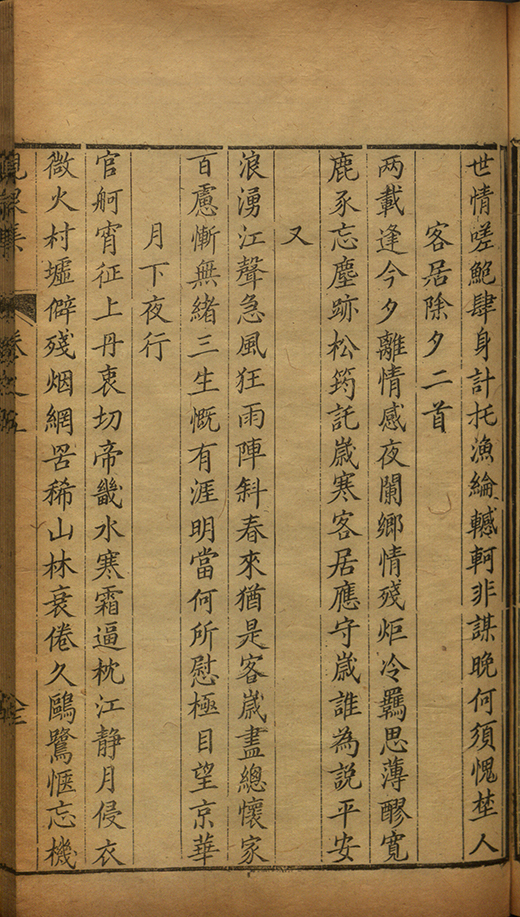 世情嗟鮑肆身計托漁綸轗軻非謀晚何須愧埜人
客居除夕二首
两載逢今夕離情感夜闌鄉情殘炬冷羈思薄醪寬
鹿豕忘塵跡松筠託歲寒客居應守歲誰為說平安
又
浪湧江聲急風狂雨陣斜春來猶是客歲盡總懷家
百慮慚無緒三生慨有涯明當何所慰極目望京華
月下夜行
官舸宵征上丹衷切帝畿水寒霜逼枕江靜月侵衣
微火村墟僻殘烟網罟稀山林衰倦久鷗鷺愜忘機